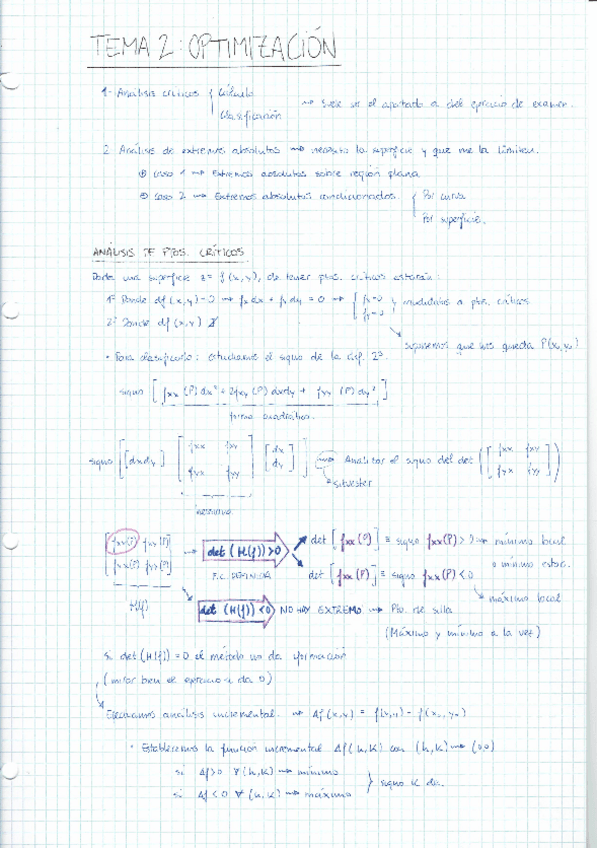 TEMA 2: OPTIMIZACIÓN
1- Análisis críticos { Cálculo
Clasificación
→ Suele ser el apartado a del ejercicio de examen.
2. Análisis de extremos absolutos → necesito la superficie y que me la limiten.
Caso 1 → Extremos absolutos sobre región plana
Caso 2 → Extremos absolutos condicionados. { Por curva
Por superficie.
ANÁLISIS DE PTOS. CRÍTICOS
Dada una superficie z = f(x,y), de tener ptos. críticos estarán:
1º Donde df(x,y)=0 → fx dx + fy dy = 0 → { fx=0
fy=0 } a ptos. críticos
2º Donde df(x,y) ∄
Suponemos que nos queda P(x₀,y₀)
• Para clasificarlo: estudiamos el signo de la dif. 2ª.
signo [ fxx (P) dx² + 2fxy (P) dxdy + fyy (P) dy² ]
forma cuadrática.
signo [ [dx dy] [ fxx fxy
fyx fyy ] [ dx
dy ] ] → Analizar el signo del det ( [ fxx fxy
fyx fyy ] )
hessiano.
[ fxx(P) fxy(P)
fyy(P) ] → det (H(f)) > 0
F.C. DEFINIDA
det [ fxx (P) ] ≡ signo fxx(P) > 0 → mínimo local
o mínimo estac.
det [ fxx (P) ] ≡ signo fxx(P) < 0
máximo local
H(f)
det (H(f)) < 0 NO HAY EXTREMO → Pto. de silla
(Máximo y mínimo a la vez)
si det (H(f)) = 0 el método no da información
(mirar bien el ejercicio si da 0)
Efectuamos análisis incremental. → Δf(x,y) = f(x,y) - f(x₀,y₀)
• Establecemos la función incremental Δf(h,k) con (h,k) → (0,0)
si Δf>0 ∀(h,k) → mínimo
si Δf<0 ∀(h,k) → máximo
} signo